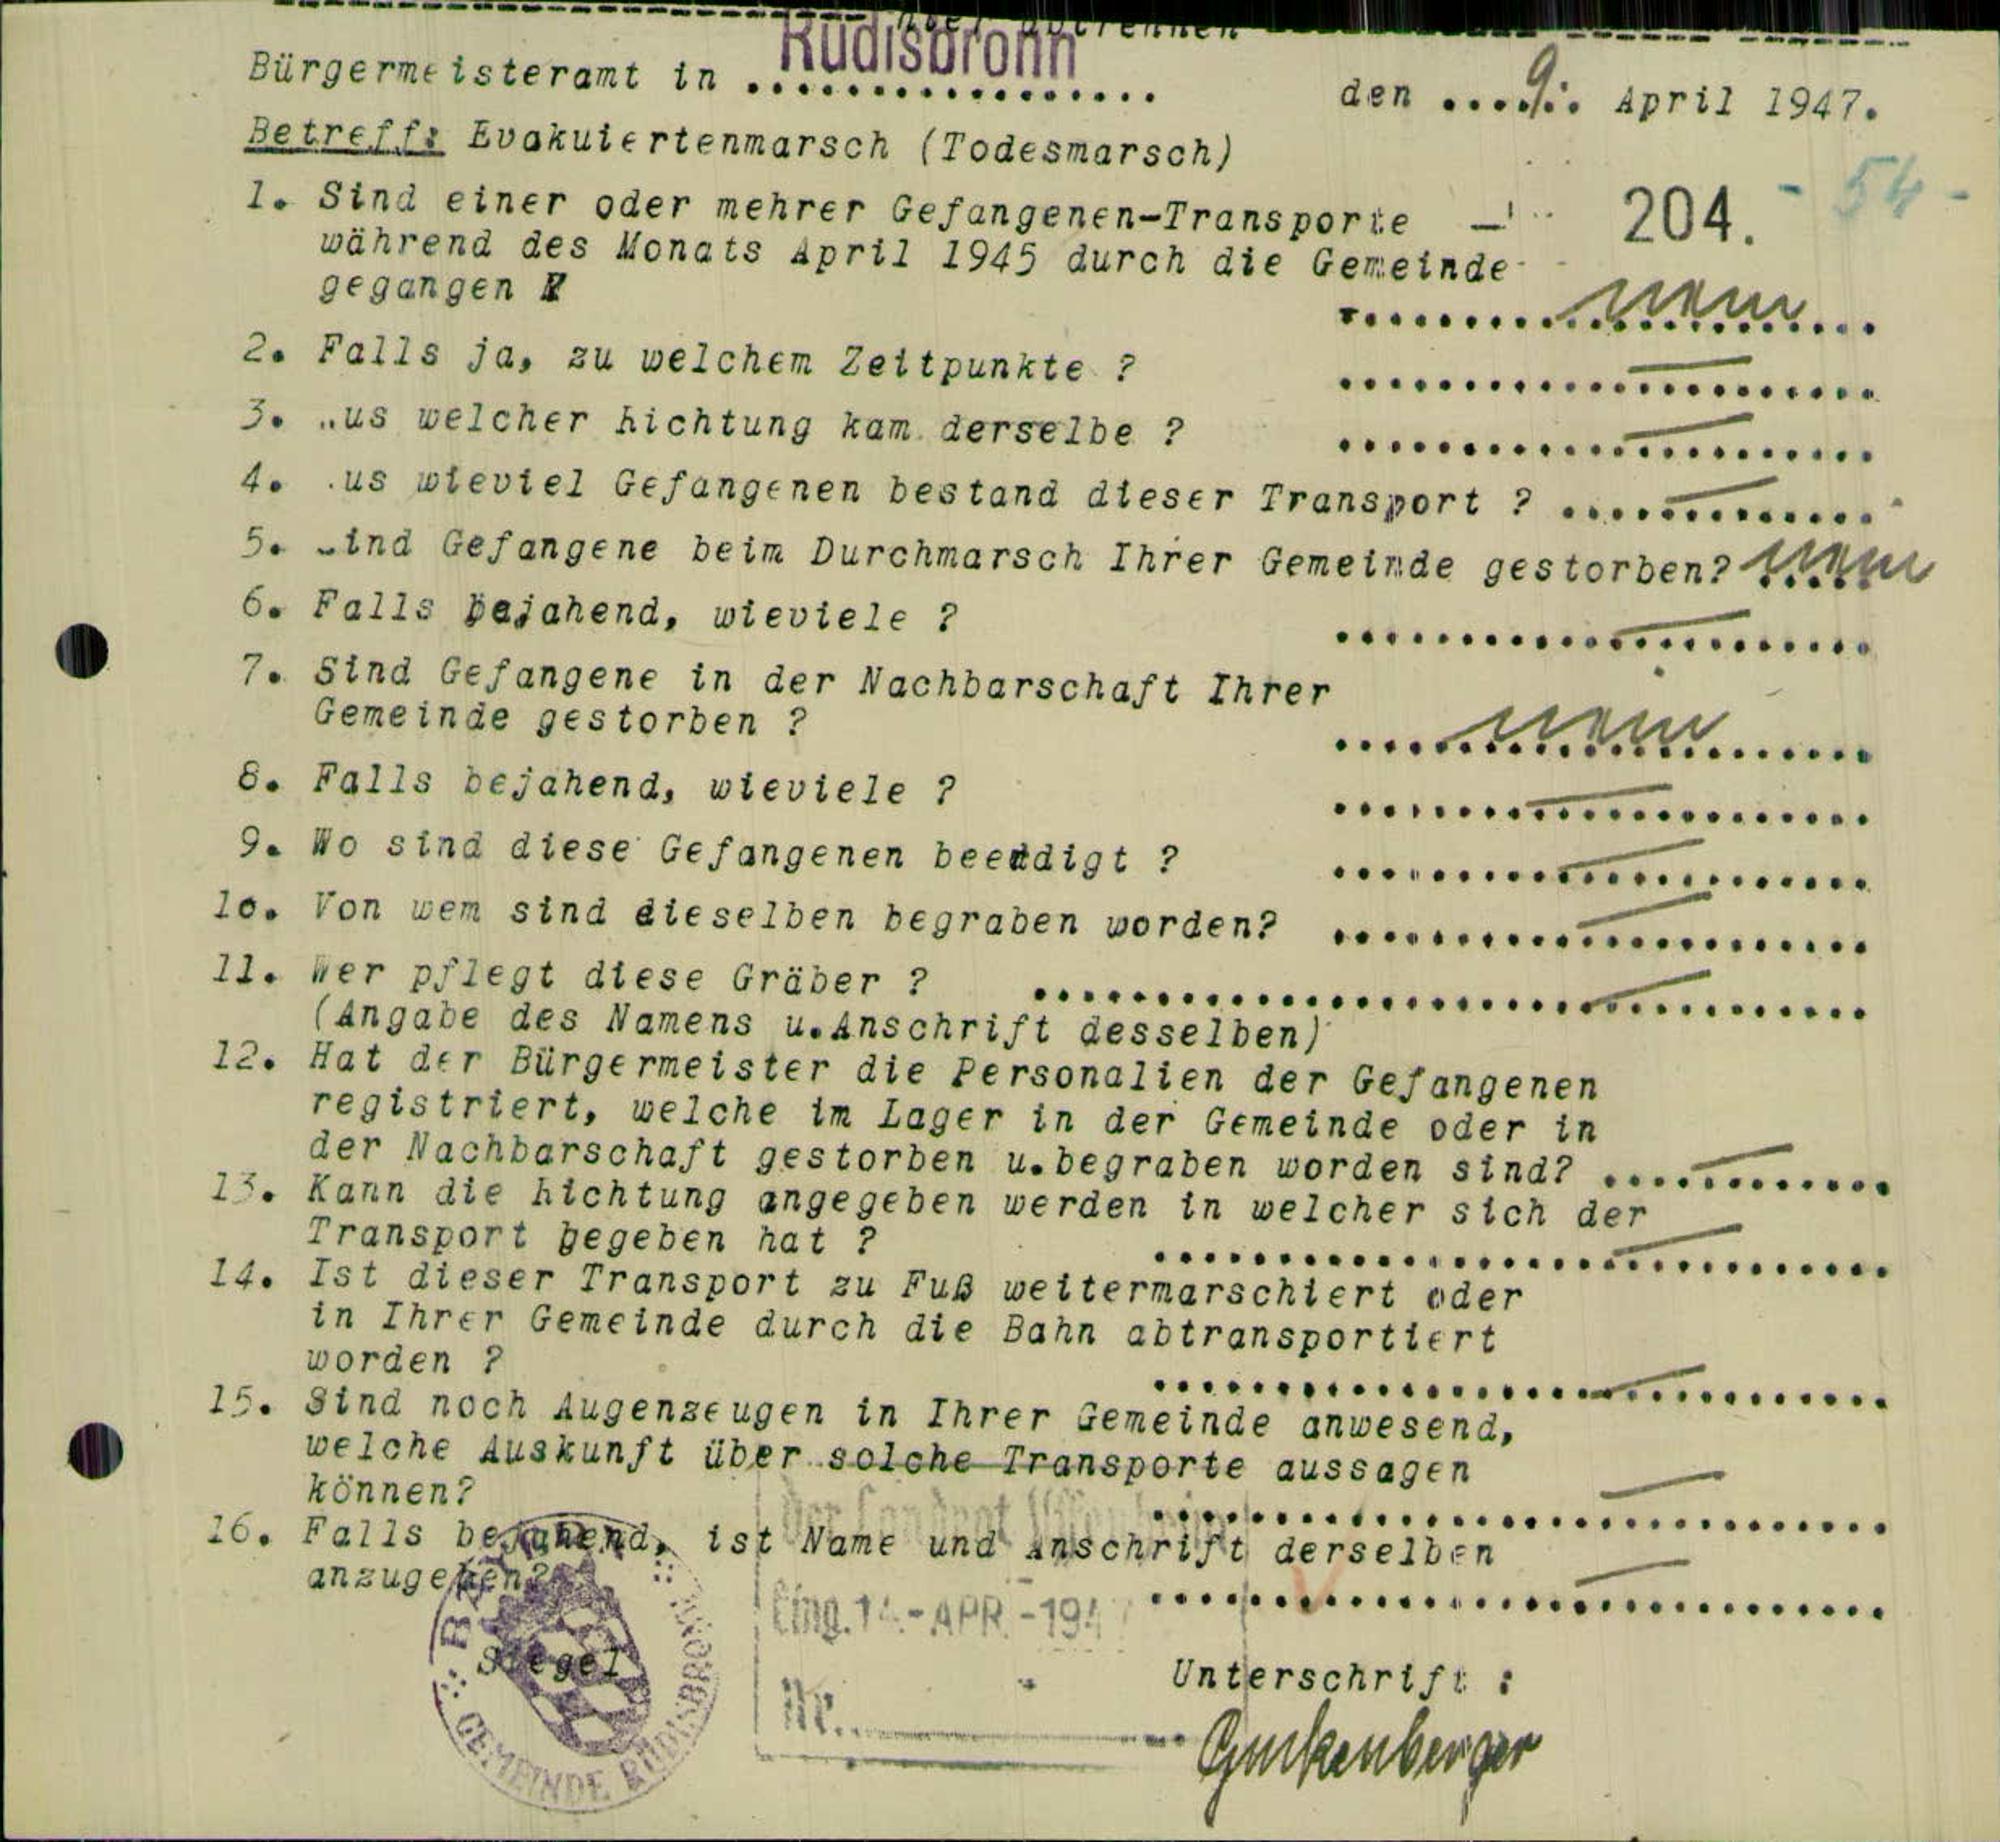 hier abtrennen
Bürgermeisteramt in Rüdisbronn
den 9. April 1947.
Betreff: Evakuiertenmarsch (Todesmarsch)
- 54 -
204.
1. Sind einer oder mehrer Gefangenen-Transporte
während des Monats April 1945 durch die Gemeinde
gegangen ? nein
2. Falls ja, zu welchem Zeitpunkte ? —
3. Aus welcher Richtung kam derselbe ? —
4. Aus wieviel Gefangenen bestand dieser Transport ? —
5. Sind Gefangene beim Durchmarsch Ihrer Gemeinde gestorben? nein
6. Falls bejahend, wieviele ? —
7. Sind Gefangene in der Nachbarschaft Ihrer
Gemeinde gestorben ? nein
8. Falls bejahend, wieviele ? —
9. Wo sind diese Gefangenen beerdigt ? —
10. Von wem sind dieselben begraben worden? —
11. Wer pflegt diese Gräber ? —
(Angabe des Namens u.Anschrift desselben)
12. Hat der Bürgermeister die Personalien der Gefangenen
registriert, welche im Lager in der Gemeinde oder in
der Nachbarschaft gestorben u.begraben worden sind? —
13. Kann die Richtung angegeben werden in welcher sich der
Transport begeben hat ? —
14. Ist dieser Transport zu Fuß weitermarschiert oder
in Ihrer Gemeinde durch die Bahn abtransportiert
worden ? —
15. Sind noch Augenzeugen in Ihrer Gemeinde anwesend,
welche Auskunft über solche Transporte aussagen
können? —
Der Landrat Uffenheim
16. Falls bejahend, ist Name und Anschrift derselben
anzugeben? —
Eing. 14.-APR.-1947
Nr.
Siegel
BAYERN
GEMEINDE RÜDISBRONN
Unterschrift :